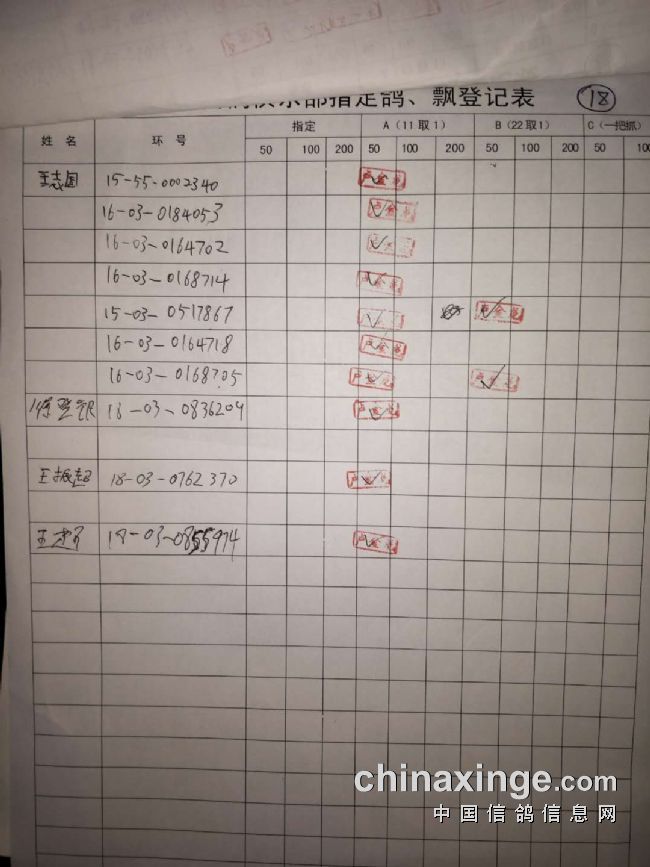 部指定鸽、飘登记表 18
姓 名 环 号 指定 A（11取1） B（22取1） C（一把抓）
50 100 200 50 100 200 50 100 200 50 100
王志国 15-55-0002340
16-03-0184053
16-03-0164702
16-03-0168714
15-03-0517867
16-03-0164718
16-03-0168705
18-03-0836209
王振超 18-03-0762370
18-03-0855974
chinaxinge.com
中国信鸽信息网